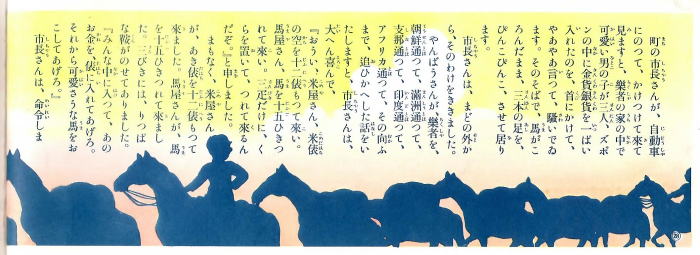 町の市長さんが、自動車
にのつて、かけつけて來て
見ますと、樂者の家の中で
可愛い男の子が二人、ズボ
ンの中に金貨銀貨を一ぱい
入れたのを、首にかけて、
やあやあ言つて、騷いでゐ
ます。そのそばで、馬がこ
ろんだまま、三本の足を、
ぴんこぴんこ、させて居り
ます。
市長さんは、まどの外か
ら、そのわけをききました。
やんばうさんが、樂者を、
朝鮮通つて、滿洲通つて、
支那通つて、印度通つて、
アフリカ通つて、その向ふ
まで、追ひかへした話をい
たしますと、市長さんは、
大へん喜んで、
『おうい、米屋さん、米俵
の空を十二俵もつて來い。
馬屋さん、馬を十五ひきつ
れて來い。一疋だけに、く
らを置いて、つれて來るん
だぞ。』と申しました。
まもなく、米屋さん
が、あき俵を十二俵もつて
來ました。馬屋さんが、馬
を十五ひきつれて來まし
た。三びきには、りつぱ
な鞍がのせてありました。
『みんな中に入つて、あの
お金を、俵に入れてあげろ。
それから可愛さうな馬をお
こしてあげろ。』
市長さんは、命令しま